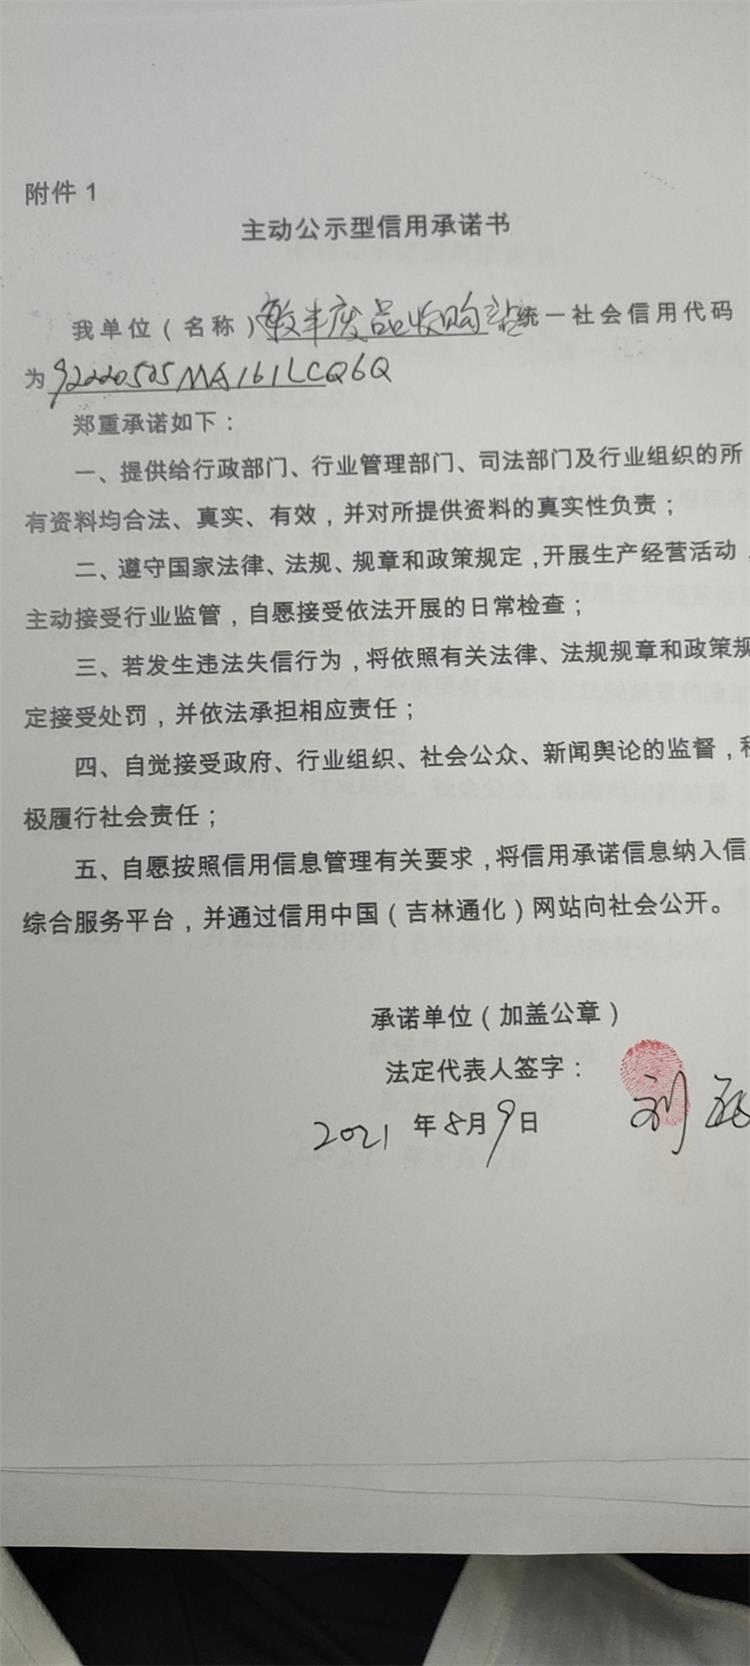 附件 1
主动公示型信用承诺书
我单位（名称）敏丰废品收购站统一社会信用代码
为92220505MA161LCQ6Q
郑重承诺如下：
一、提供给行政部门、行业管理部门、司法部门及行业组织的所
有资料均合法、真实、有效，并对所提供资料的真实性负责；
二、遵守国家法律、法规、规章和政策规定，开展生产经营活动，
主动接受行业监管，自愿接受依法开展的日常检查；
三、若发生违法失信行为，将依照有关法律、法规规章和政策规
定接受处罚，并依法承担相应责任；
四、自觉接受政府、行业组织、社会公众、新闻舆论的监督，积
极履行社会责任；
五、自愿按照信用信息管理有关要求，将信用承诺信息纳入信
综合服务平台，并通过信用中国（吉林通化）网站向社会公开。
承诺单位（加盖公章）
法定代表人签字：
刘
2021 年 8月 9日